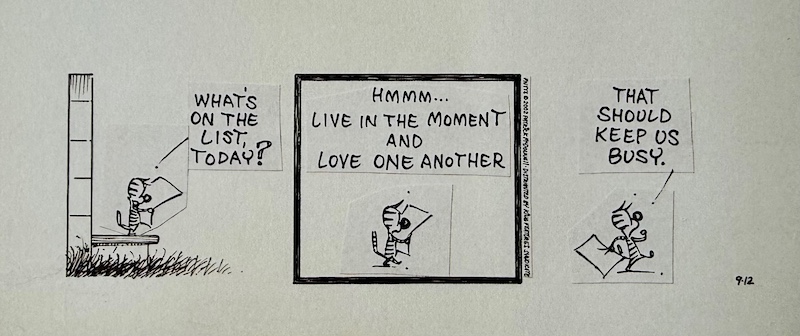 WHAT'S
ON THE
LIST,
TODAY?
HMMM...
LIVE IN THE MOMENT
AND
LOVE ONE ANOTHER
MUTTS © 2002 PATRICK McDONNELL DISTRIBUTED BY KING FEATURES SYNDICATE
THAT
SHOULD
KEEP US
BUSY.
9.12